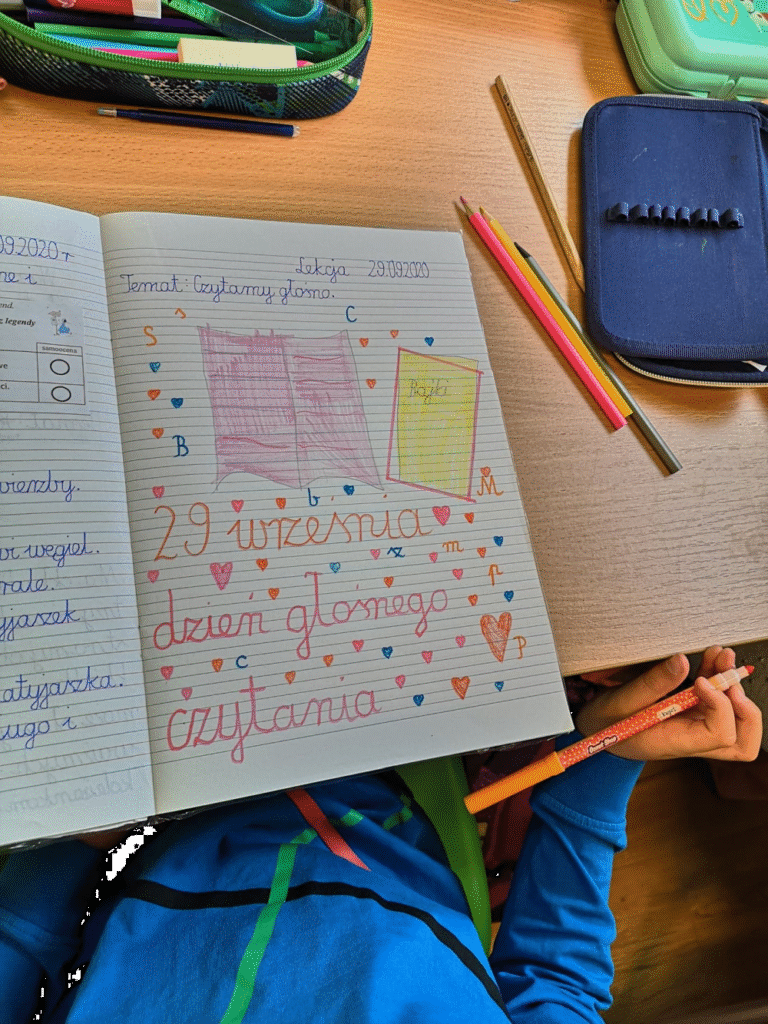 09.2020 r
ne i
end.
z legendy
samoocena
we
ci.
wi węgiel.
rale.
yjaszek
atyjaszka.
ugo i
Lekcja 29.09.2020
Temat: Czytamy głośno.
S
C
B
Bajki
b
M
29 września
sz
m
p
dzień głośnego
c
p
czytania